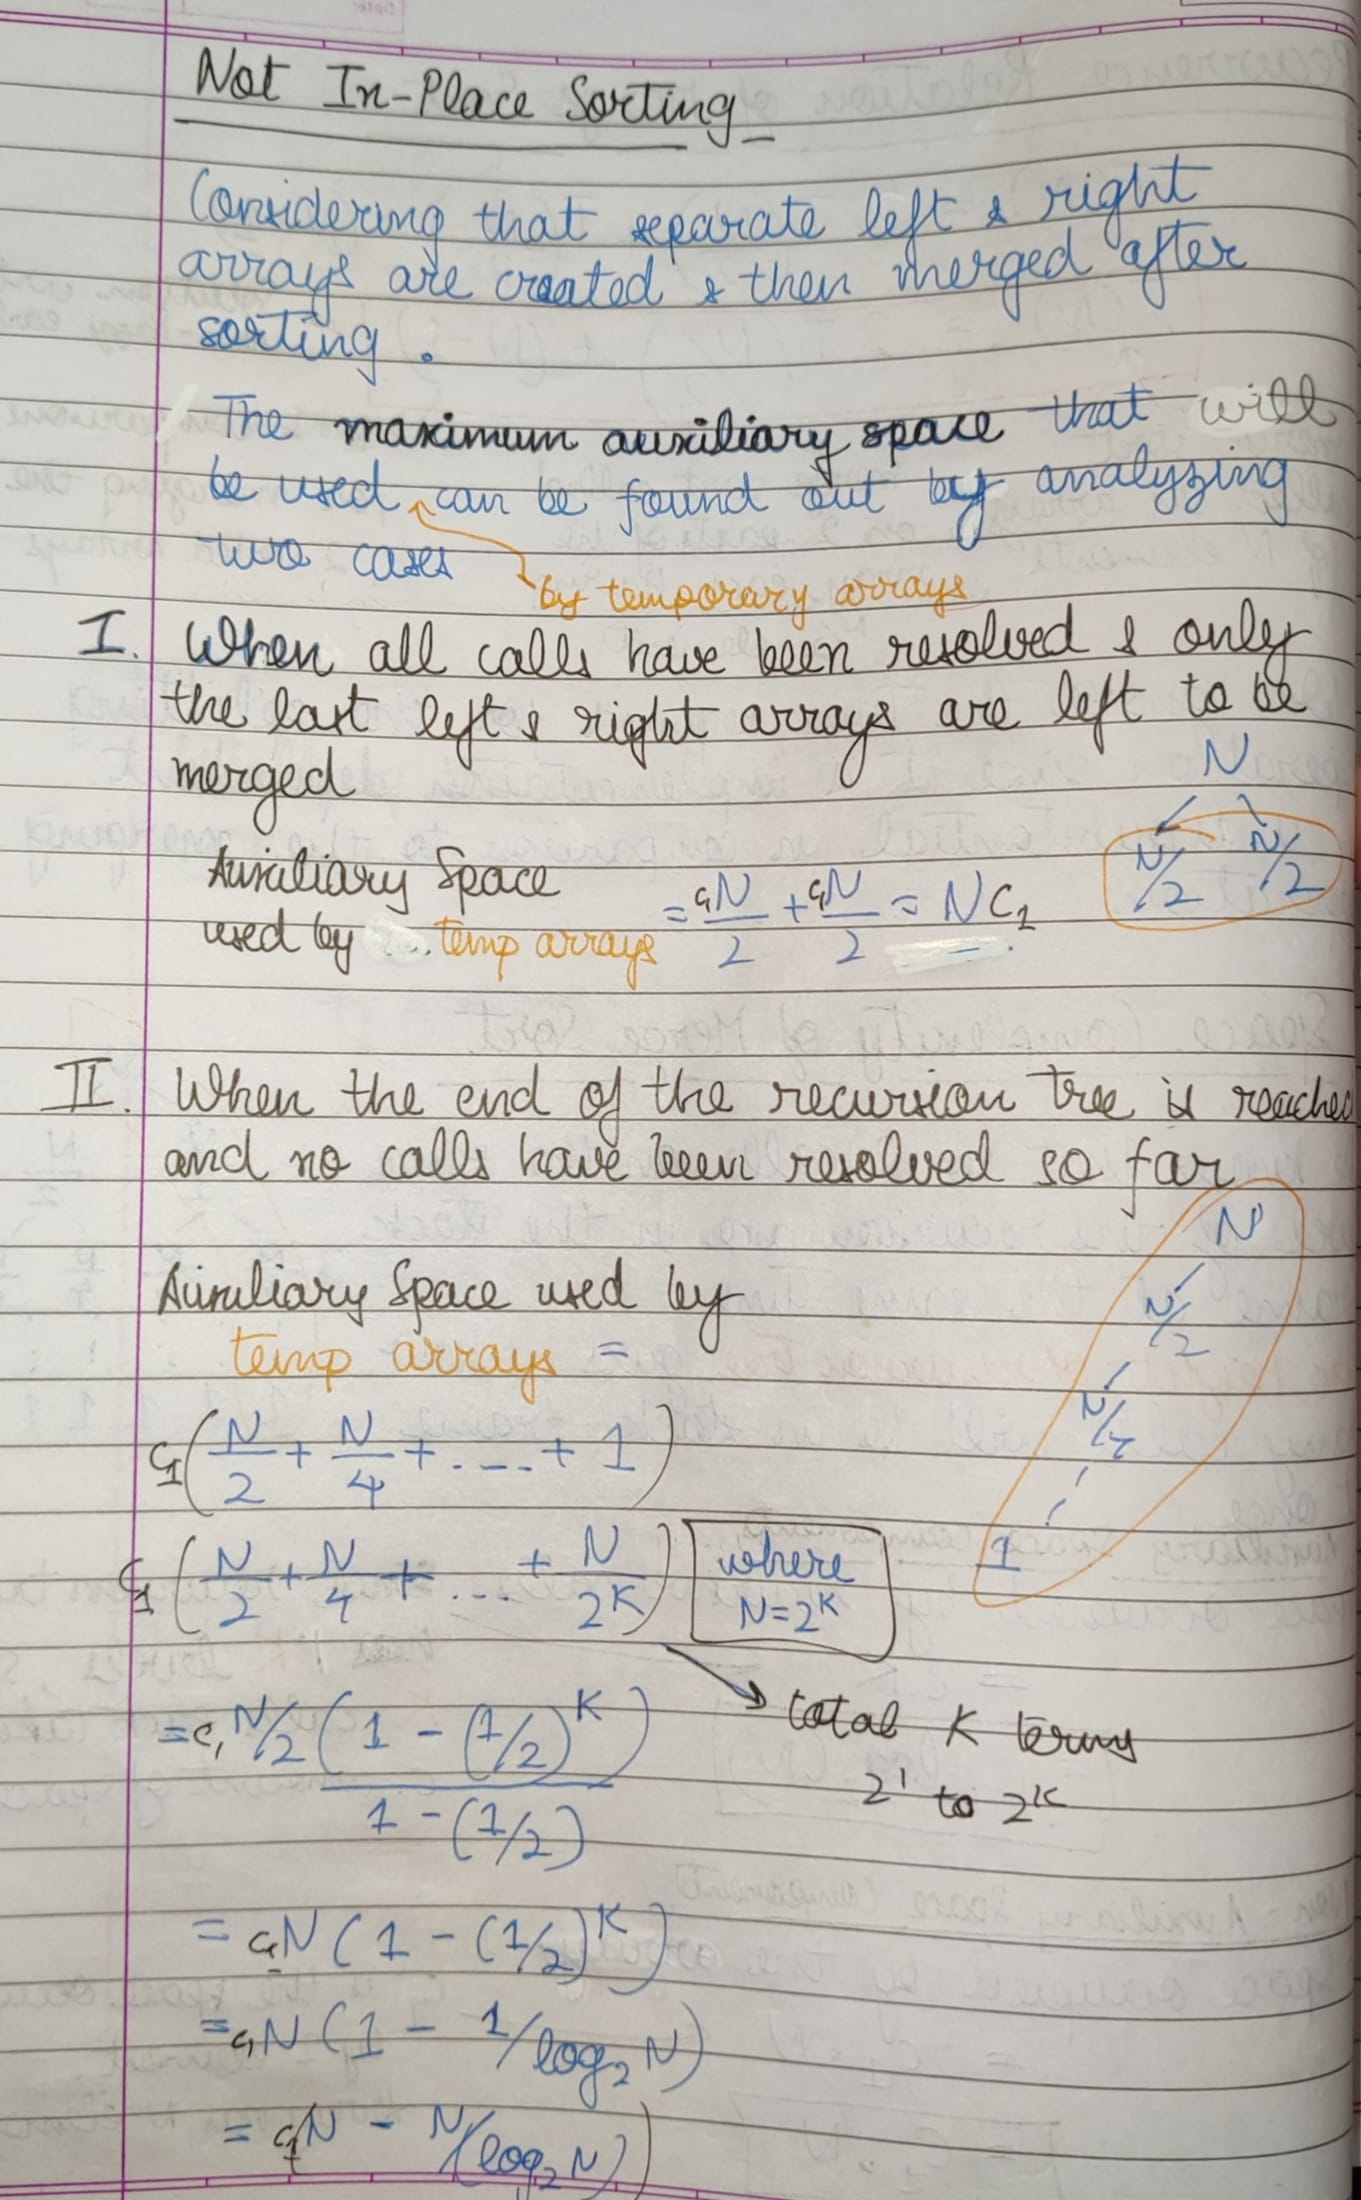 Not In-Place Sorting
Considering that separate left & right
arrays are created & then merged after
sorting.
The maximum auxiliary space that will
be used can be found out by analyzing
two cases
by temporary arrays
I. When all calls have been resolved & only
the last left & right arrays are left to be
merged
N
N/2 N/2
Auxiliary Space
used by temp arrays = C₁N/2 + C₁N/2 = NC₁
II. When the end of the recursion tree is reached
and no calls have been resolved so far
N
N/2
N/4
1
Auxiliary Space used by
temp arrays =
C₁(N/2 + N/4 + .... + 1)
C₁(N/2 + N/4 + ... + N/2ᴷ) where
N=2ᴷ
= C₁ N/2 (1 - (1/2)ᴷ) / 1 - (1/2)
total K terms
2¹ to 2ᴷ
= C₁N (1 - (1/2)ᴷ)
= C₁N (1 - 1/log₂N)
= C₁(N - N/(log₂N))